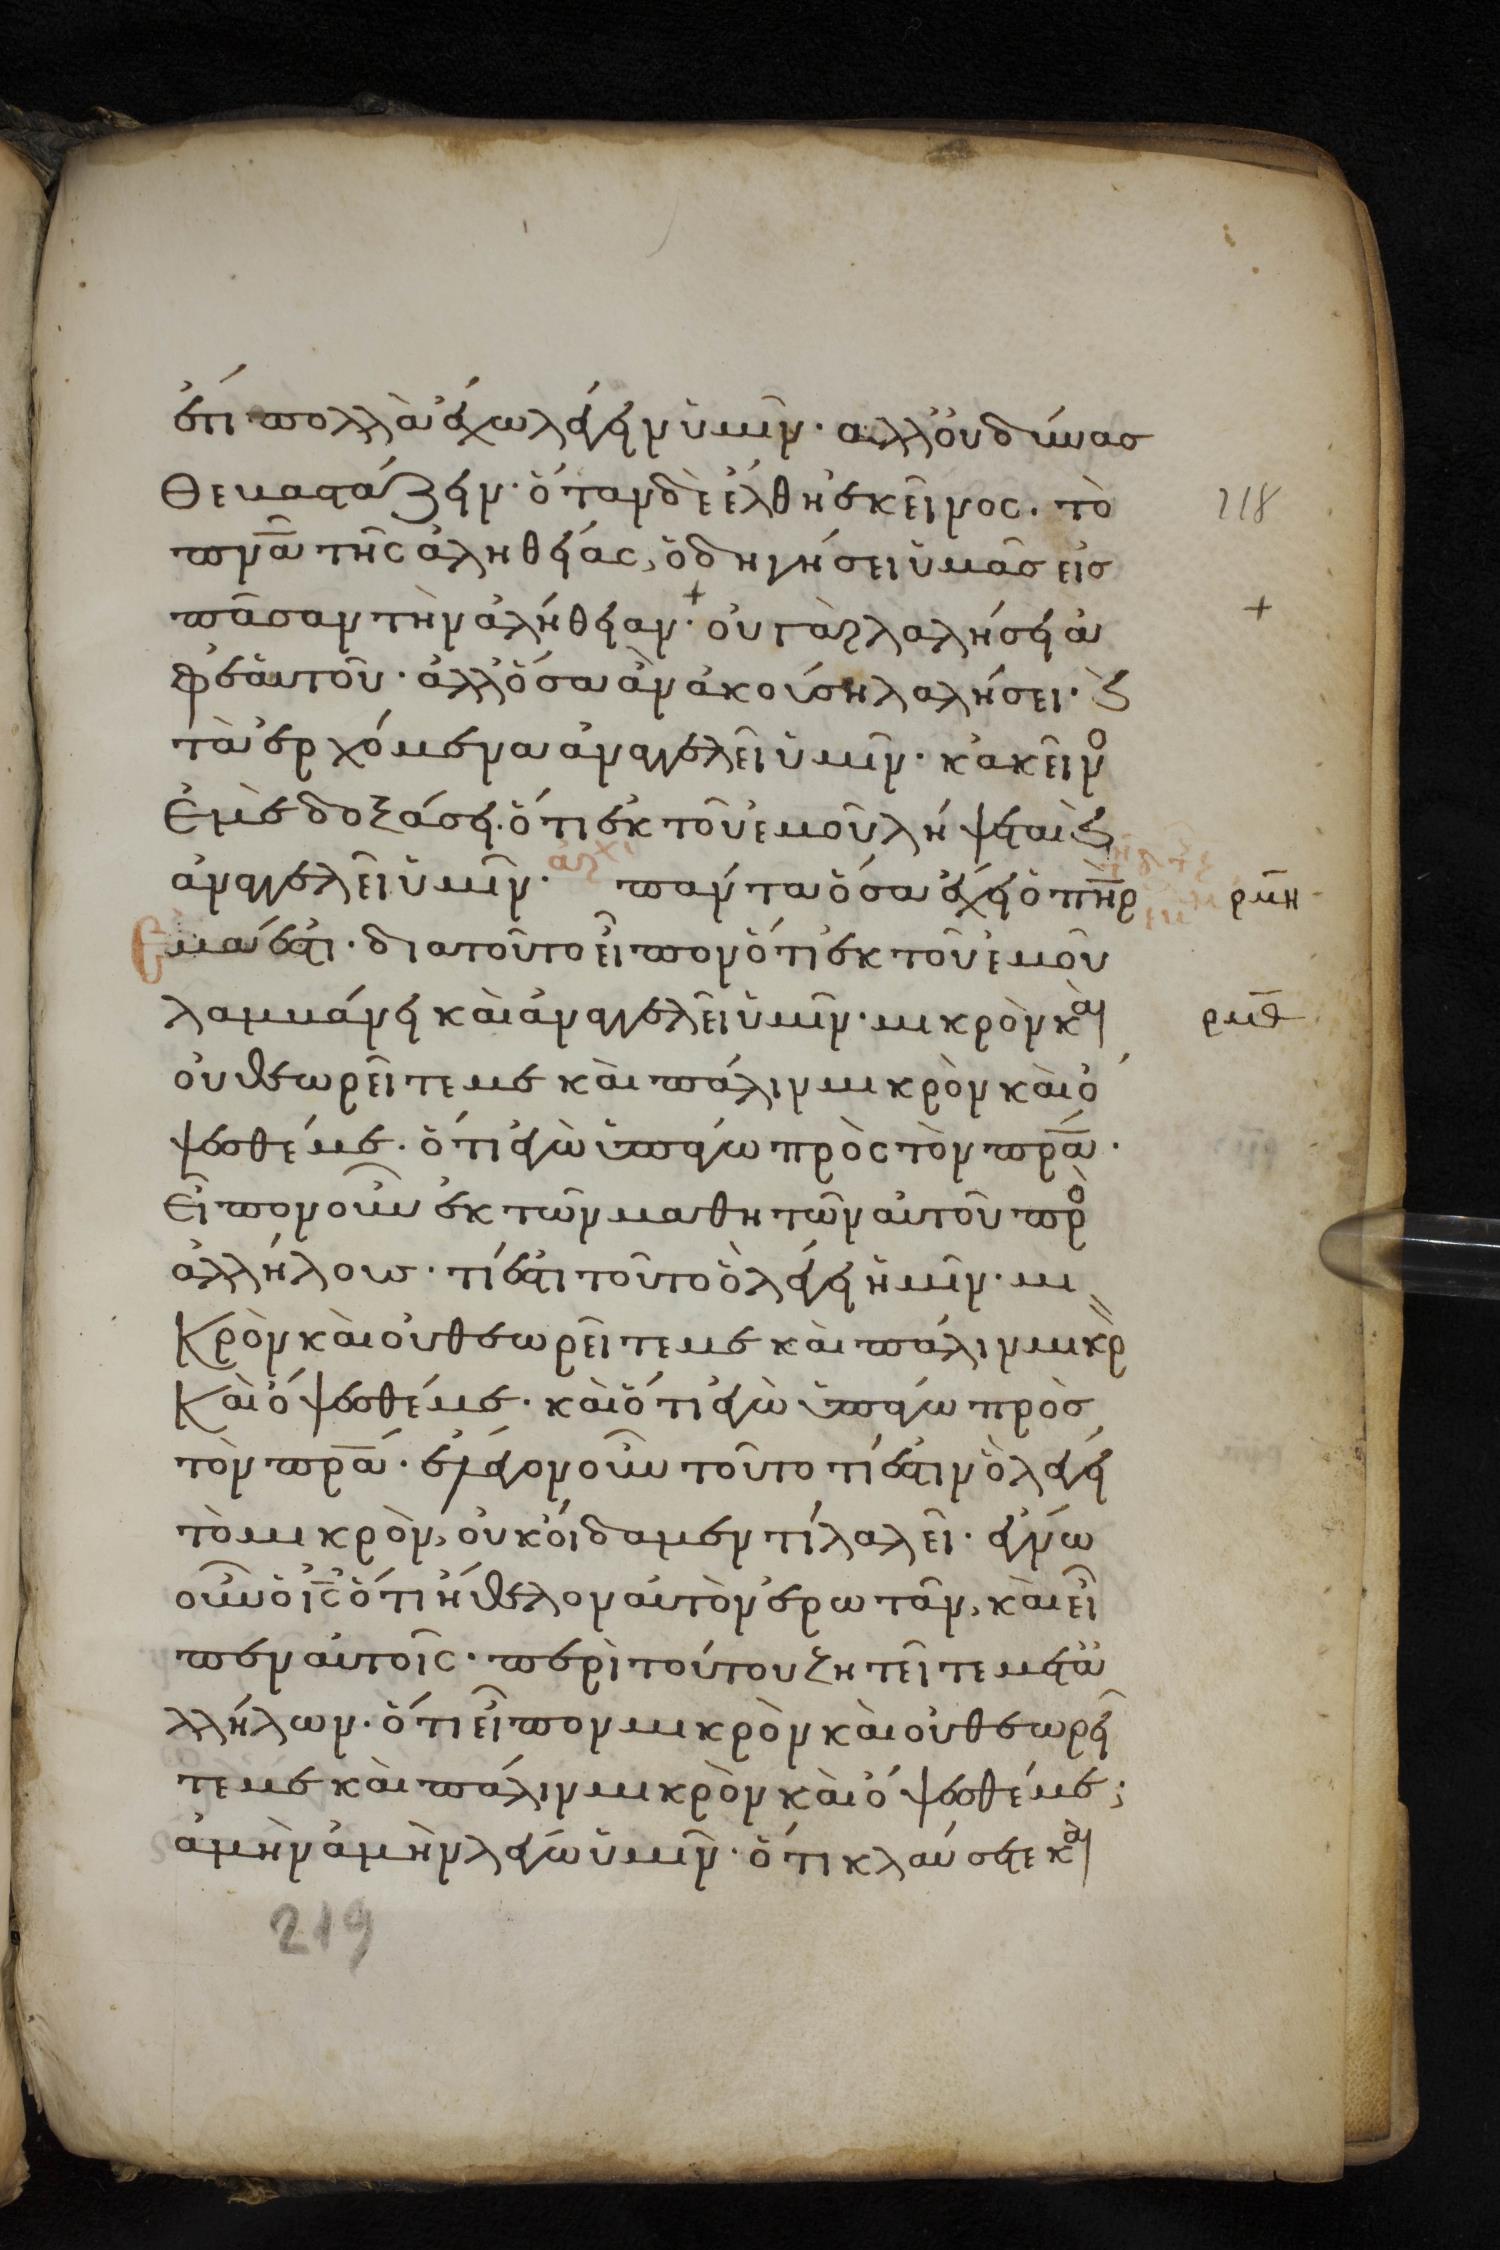 ἔτι πολλὰ ἔχω λέγειν ὑμῖν· ἀλλ' οὐ δύνασ
θε βαστάζειν· ὅταν δὲ ἔλθη ἐκεῖνος· τὸ
πνᾶ τῆς ἀληθείας, ὁδηγήσει ὑμᾶς εἰς
πᾶσαν τὴν ἀλήθειαν·+ οὐ γὰρ λαλήσει ἀ
φ' ἑαυτοῦ· ἀλλ' ὅσα ἂν ἀκούση λαλήσει· ϗ
τὰ ἐρχόμενα ἀναγγελεῖ ὑμῖν· κἀκεῖνο
ἐμὲ δοξάσει· ὅτι ἐκ τοῦ ἐμοῦ λήψεται ϗ
ἀναγγελεῖ ὑμῖν· ἀρχ πάντα ὅσα ἔχει ὁ πηρ
ἐμά ἐστι· διατοῦτο εἶπον ὅτι ἐκ τοῦ ἐμοῦ
λαμβάνει καὶ ἀναγγελεῖ ὑμῖν· μικρὸν καὶ
οὐ θεωρεῖτε με καὶ πάλιν μικρὸν καὶ ὄ
ψεσθέ με· ὅτι ἐγὼ ὑπάγω πρὸς τὸν πρα·
εἶπον οὖν ἐκ τῶν μαθητῶν αὐτοῦ προ
ἀλλήλους· τί ἐστι τοῦτο ὃ λέγει ἡμῖν· μι
κρὸν καὶ οὐ θεωρεῖτε με καὶ πάλιν μικρ
καὶ ὄψεσθέ με· καὶ ὅτι ἐγὼ ὑπάγω πρὸς
τὸν πρα· ἔλεγον οὖν τοῦτο τί ἐστιν ὃ λέγει
τὸ μικρὸν, οὐκ οἴδαμεν τί λαλεῖ· ἔγνω
οὖν ὁ ις ὅτι ἤθελον αὐτὸν ἐρωτᾶν, καὶ εἶ
πεν αὐτοῖς· περὶ τούτου ζητεῖτε μετ' ἀ
λλήλων· ὅτι εἶπον μικρὸν καὶ οὐ θεωρεῖ
τε με καὶ πάλιν μικρὸν καὶ ὄψεσθέ με;
ἀμὴν ἀμὴν λέγω ὑμῖν· ὅτι κλαύσετε καὶ
218
+
ρμη
ρμθ
219